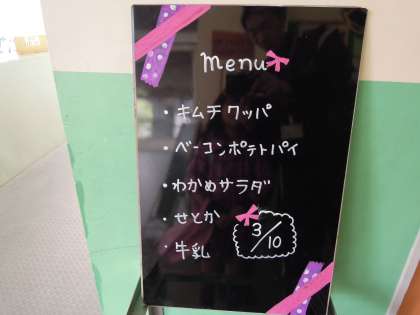 menu
・キムチクッパ
・ベーコンポテトパイ
・わかめサラダ
・せとか
・牛乳
3/10